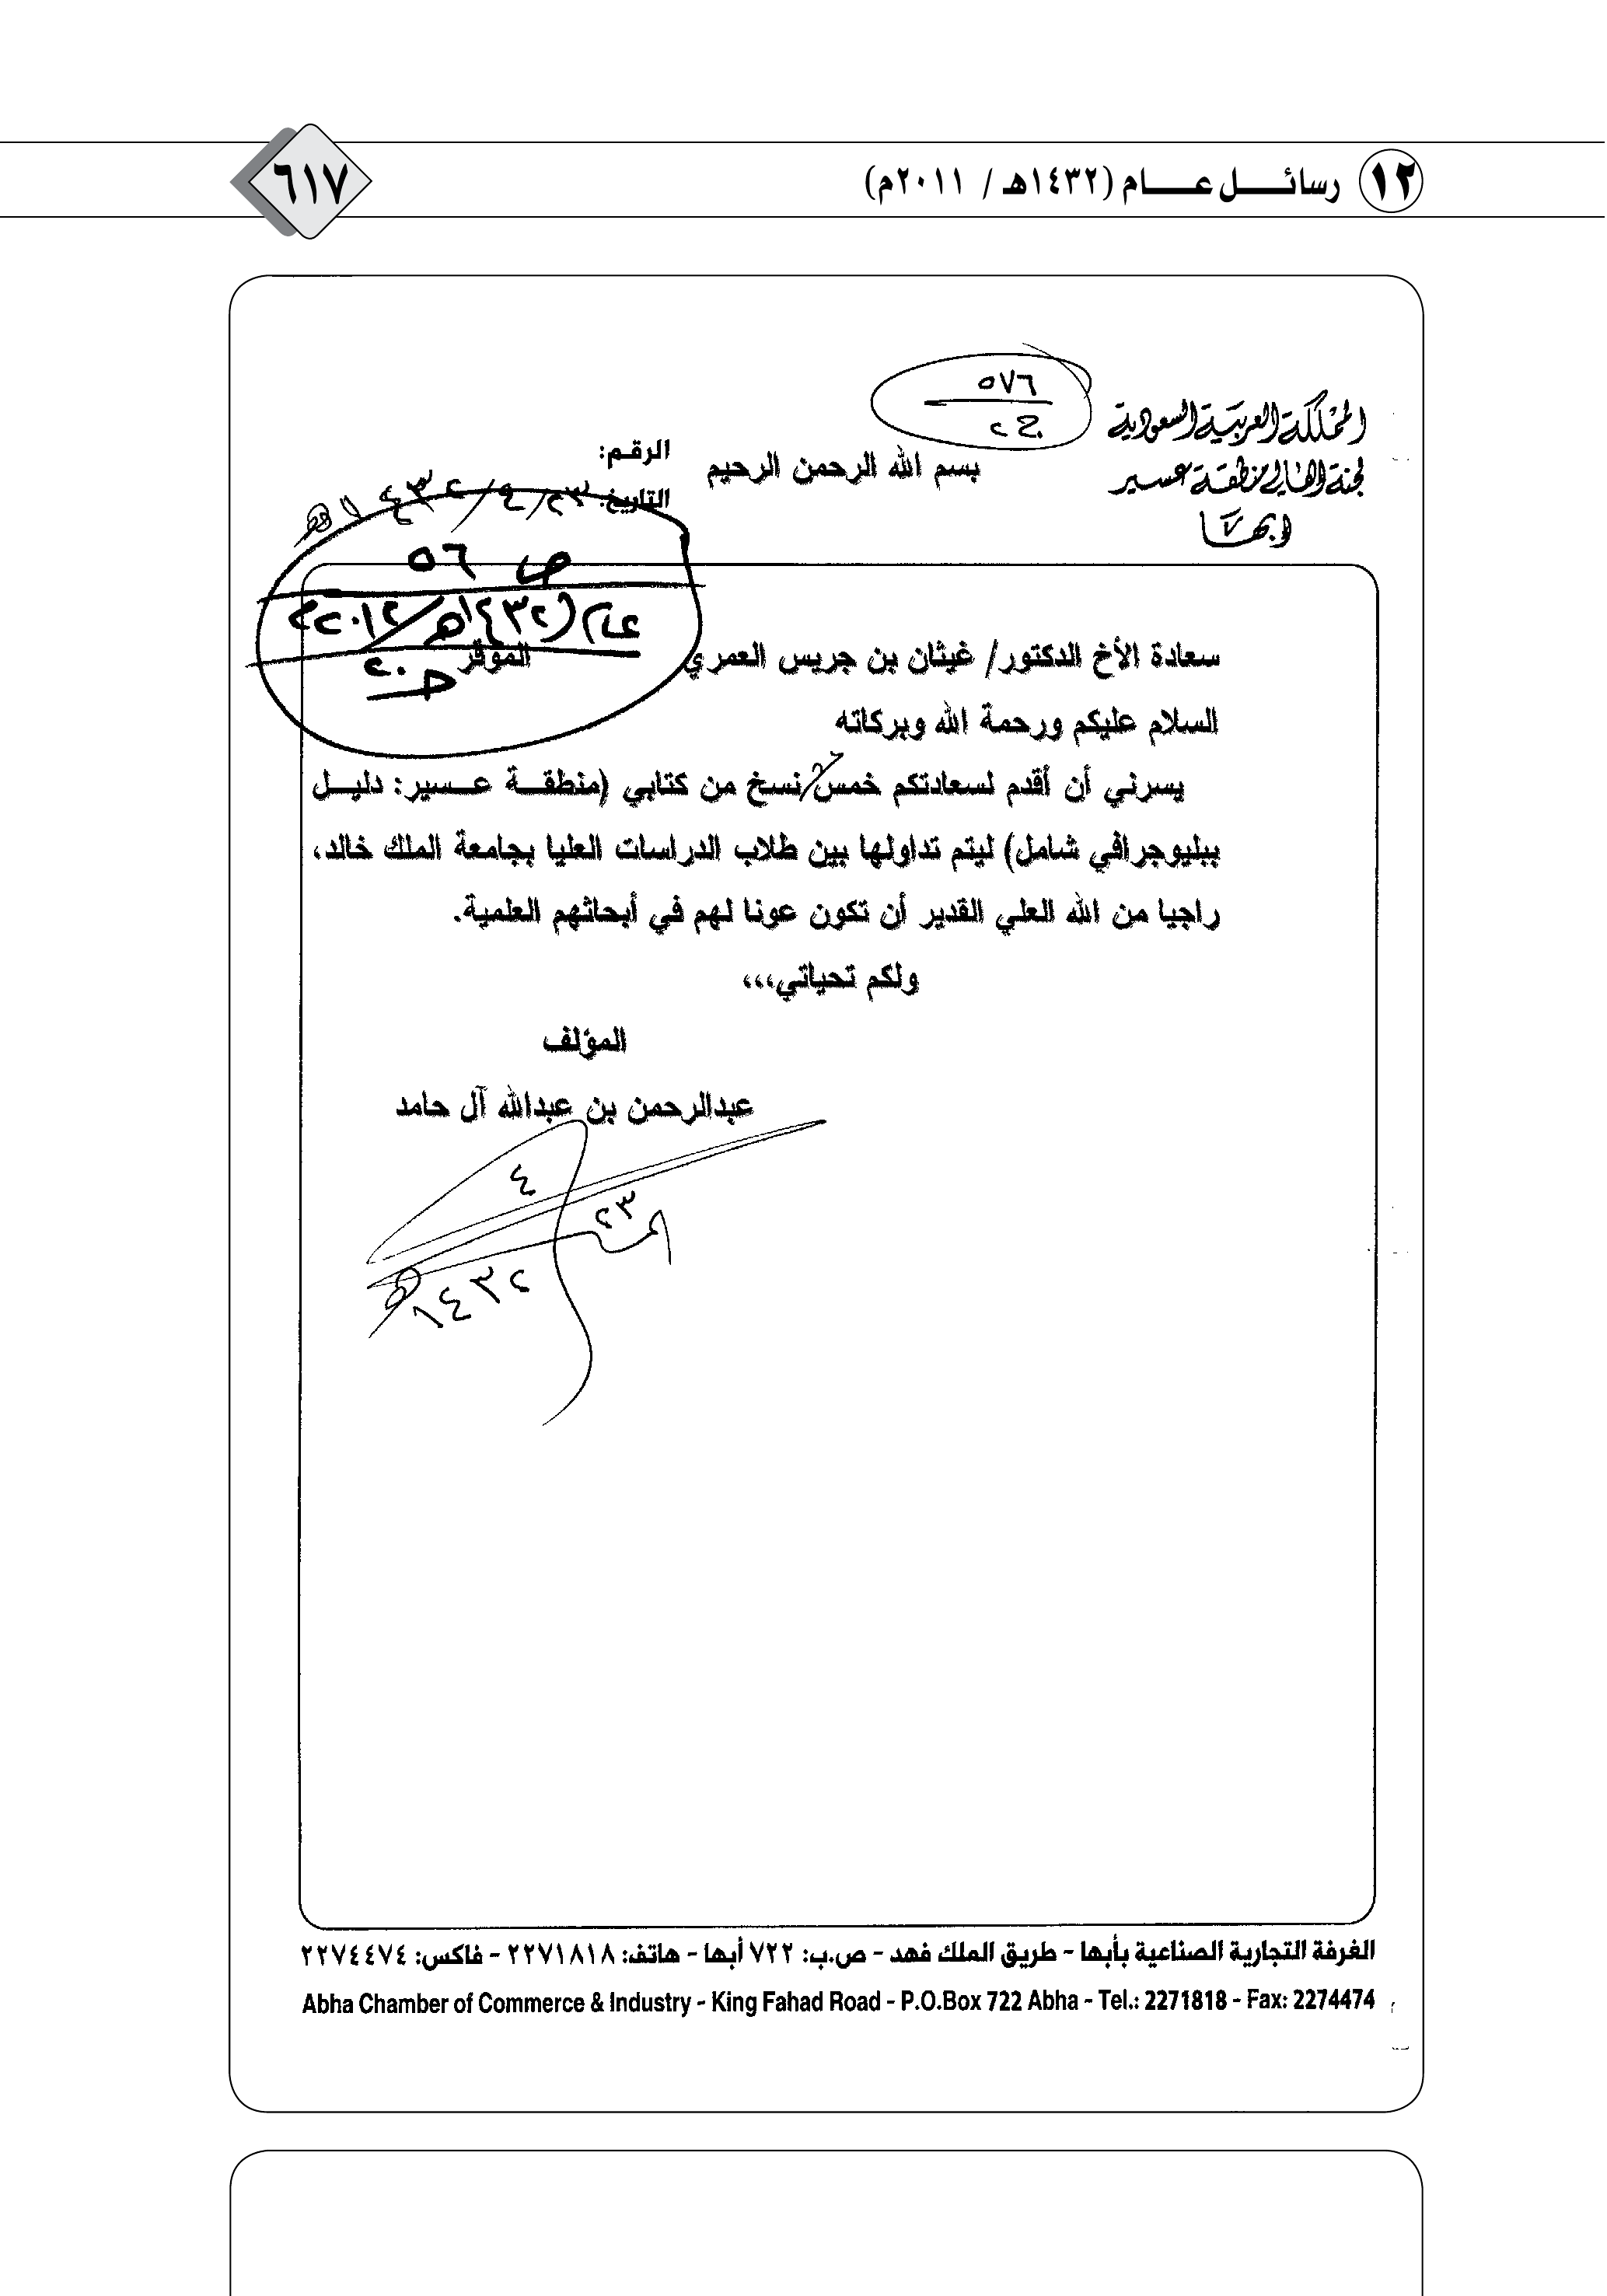 ١٢ رسائل عام (١٤٣٢هـ / ٢٠١١م) ٦١٧
المملكة العربية السعودية
لجنة اهالي منطقة عسير
ابها
٥٧٦
ج٢
بسم الله الرحمن الرحيم
الرقم:
التاريخ: ٢٣/٤/١٤٣٢هـ
ص ٥٦
عام (١٤٣٢هـ/٢٠١٢م
ح ٢٠
سعادة الأخ الدكتور/ غيثان بن جريس العمري الموقر
السلام عليكم ورحمة الله وبركاته
يسرني أن أقدم لسعادتكم خمس نسخ من كتابي (منطقة عسير: دليل
ببليوجرافي شامل) ليتم تداولها بين طلاب الدراسات العليا بجامعة الملك خالد،
راجيا من الله العلي القدير أن تكون عونا لهم في أبحاثهم العلمية.
ولكم تحياتي،،،
المؤلف
عبدالرحمن بن عبدالله آل حامد
٤
٢٣
١٤٣٢هـ
الغرفة التجارية الصناعية بأبها - طريق الملك فهد - ص.ب: ٧٢٢ أبها - هاتف: ٢٢٧١٨١٨ - فاكس: ٢٢٧٤٤٧٤
Abha Chamber of Commerce & Industry - King Fahad Road - P.O.Box 722 Abha - Tel.: 2271818 - Fax: 2274474